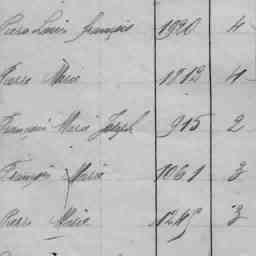 Pierre Louis François 1920 4
Pierre Marie 1812 4
François Marie Joseph 915 2
François Marie 1061 3
Pierre Marie 3